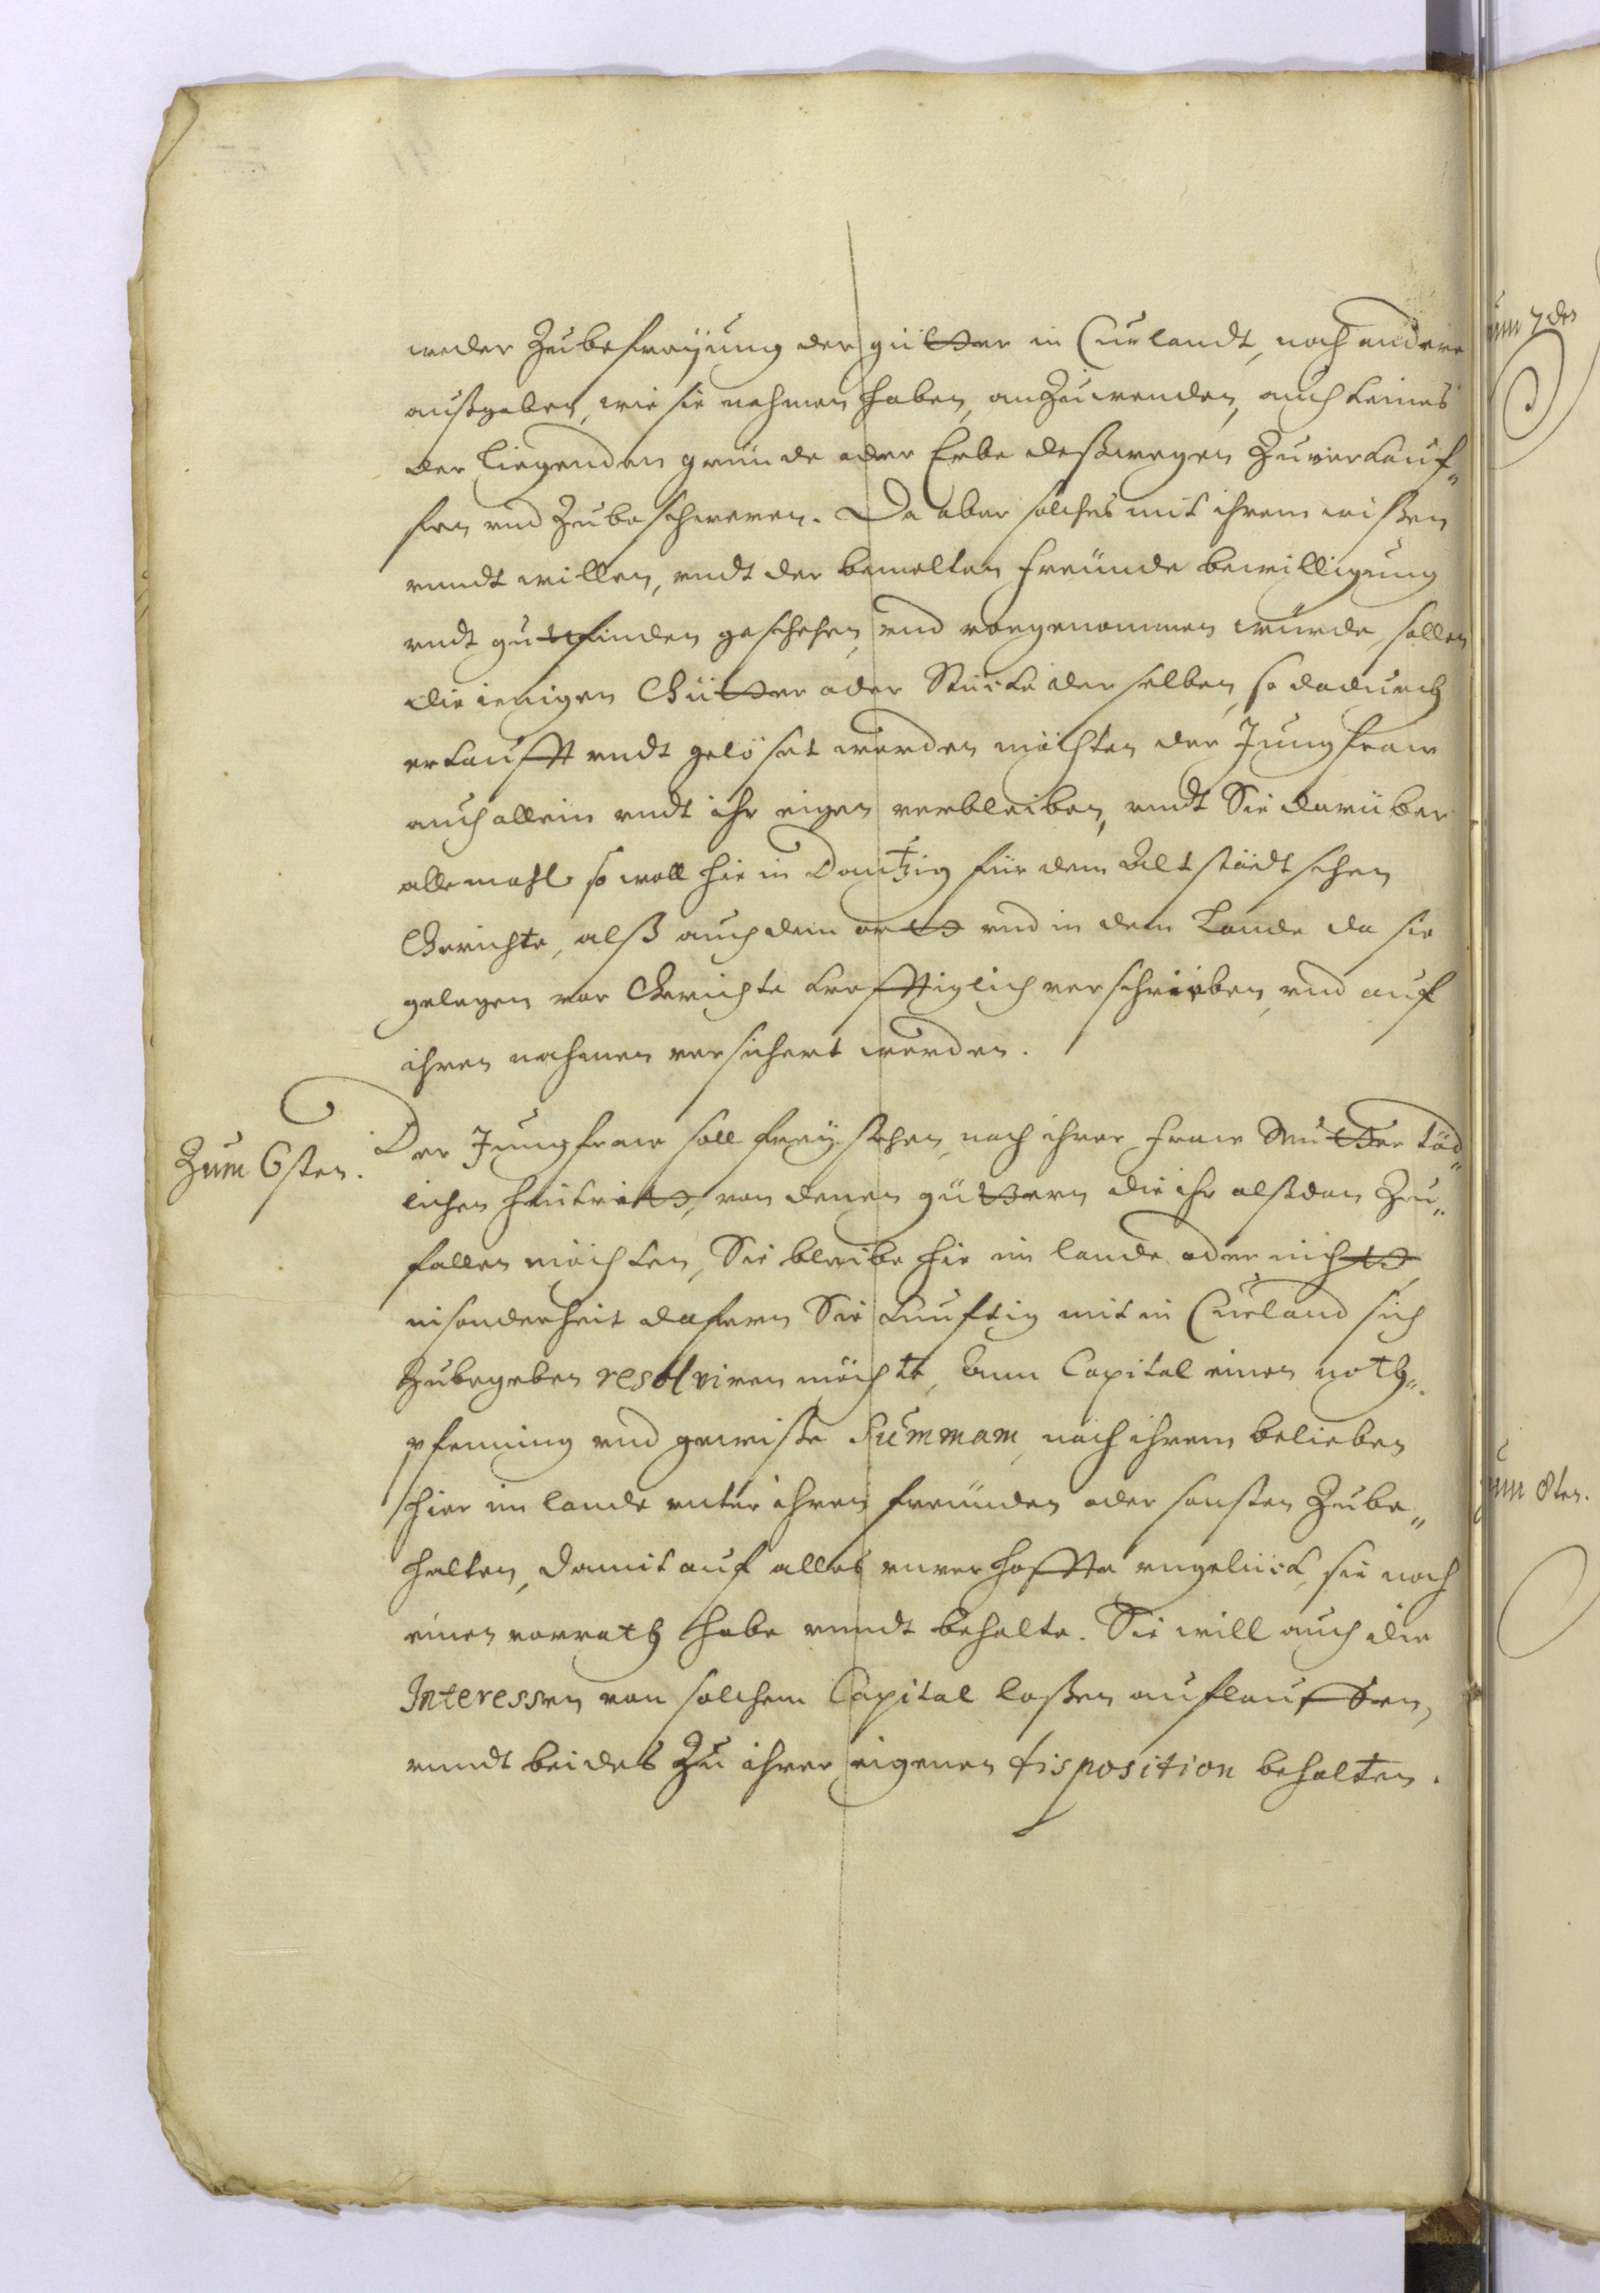 weder Zubefreÿung der gütter in Curlandt, noch andere
außgaben, wie sie nahmen haben, anZuwenden, auch keines
der liegenden gründe oder Erbe deßwegen Zuverkauf-
fen vnd Zubeschweren. Da aber solches mit ihrem wißen
vnndt willen, vndt der bemelten freünde bewilligung
vndt gutfinden geschehen, vnd vorgenommen würde, sollen
die ienigen Gütter oder Stücke derselben, so dadurch
erkaufft vndt gelöset werden möchten der Jungfraw
auch allein vndt ihr eigen verbleiben, vndt Sie darüber
allemahl so woll hie in Dantzig für dem Altstädtschen
Gerichte, alß auch dem ortt vnd in dem Lande da sie
gelegen vor Gerichte krefftiglich verschrieben, vnd auf
ihren nahmen versichert werden.
Zum 6sten. Der Jungfraw soll freÿ stehen, nach ihrer Fraw Mutter töd-
lichen hintritt, von denen güttern die ihr alßdan Zu-
fallen möchten, Sie bleibe hie im lande oder nicht
insonderheit dafern Sie künftig mit in Curland sich
Zubegeben resolviren möchte, Ann Capital einen noth-
pfenning vnd gewiße Summam, nach ihrem belieben
hier im lande vnter ihren freünden oder sonsten Zube-
halten, damit auf alles vnverhoffte vngelück, sie noch
einen vorrath habe vnndt behalte. Sie will auch die
Interessen von solchem Capital laßen auflauffen,
vnndt beides Zu ihrer eigenen disposition behalten.
um 7 des
um 8ten.